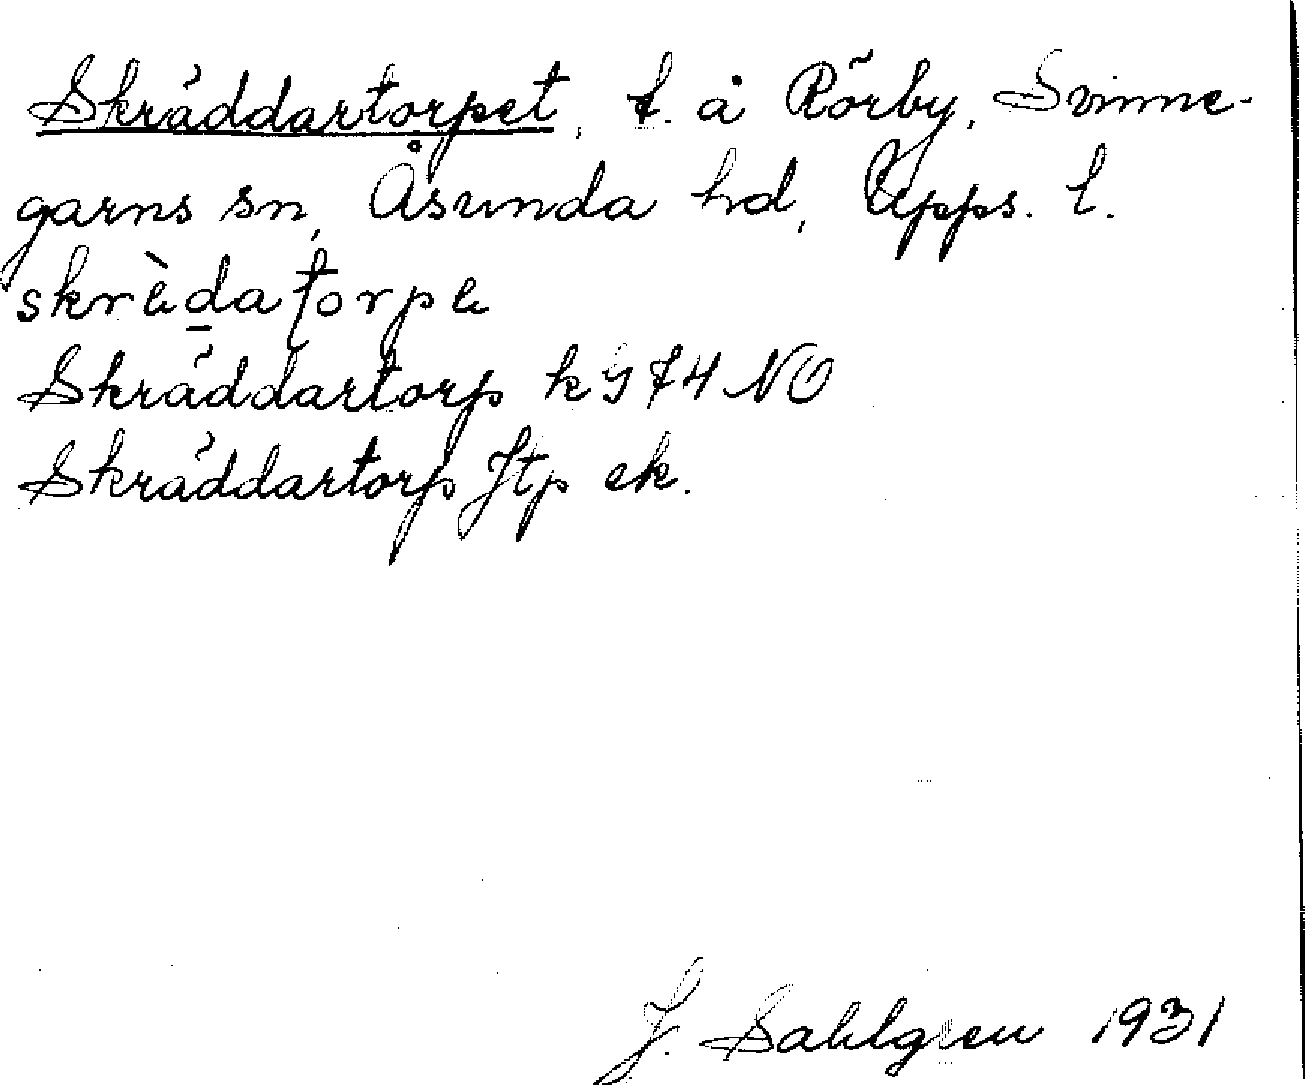 Skräddartorpet, t. å Rörby, Svinne-
garns sn, Åsunda hd, Upps. l.
skrὲdatorpε
Skräddartorp k 9 f4 NO
Skräddartorp Jtp ek.
J. Sahlgren 1931